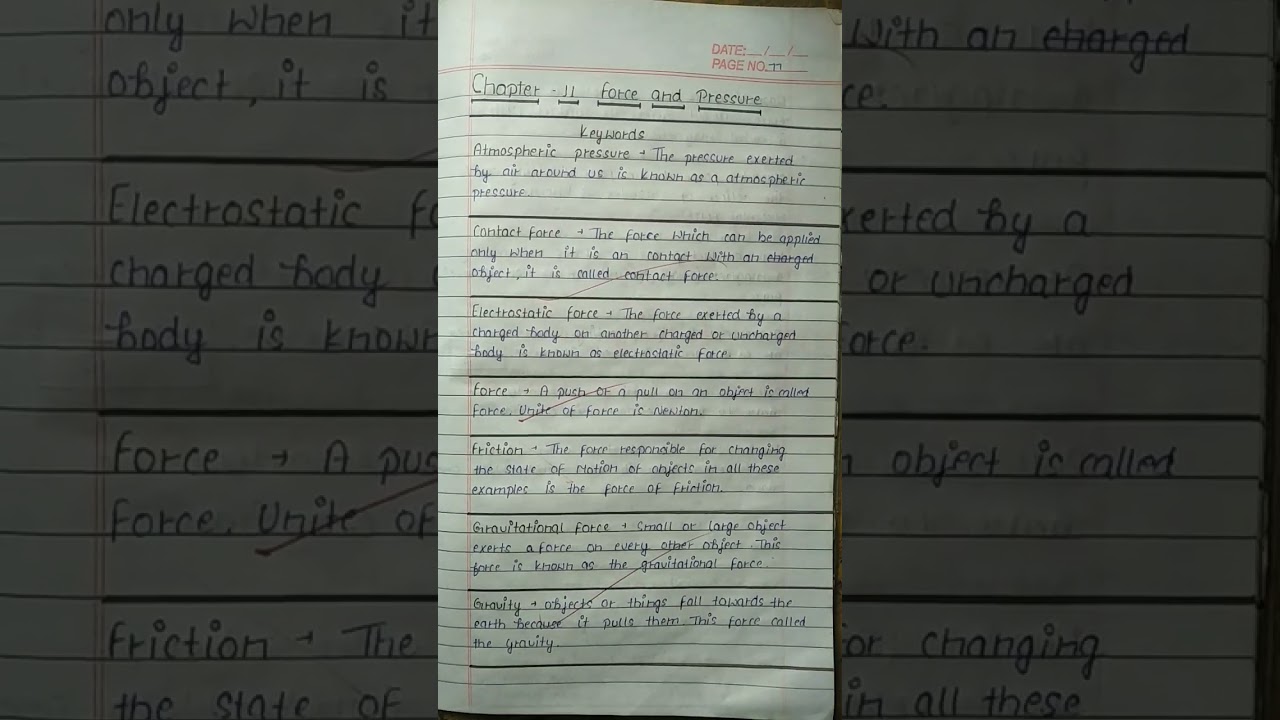 DATE:__/__/__
PAGE NO. 77
Chapter - 11 Force and Pressure
Keywords
Atmospheric pressure → The pressure exerted
by air around us is known as a atmospheric
pressure.
Contact force → The force which can be applied
only when it is an contact with an charged
object, it is called contact force.
Electrostatic force → The force exerted by a
charged body on another charged or uncharged
body is known as electrostatic force.
Force → A push or a pull on an object is called
force. Unite of force is Newton.
Friction → The force responsible for changing
the state of Motion of objects in all these
examples is the force of friction.
Gravitational force → Small or large object
exerts a force on every other object. This
force is known as the gravitational force.
Gravity → objects or things fall towards the
earth because it pulls them This force called
the gravity.